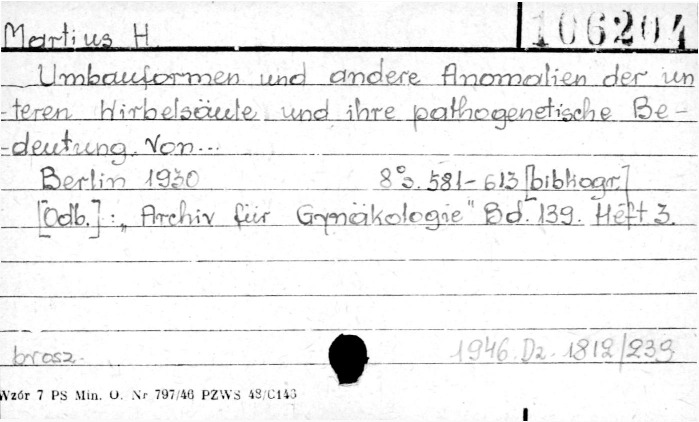 Martius H. 106204
Umbauformen und andere Anomalien der un
-teren Wirbelsäule und ihre pathogenetische Be-
-deutung. Von...
Berlin 1930 8° s. 581-613 [bibliogr.]
[Odb.]: „Archiv für Gynäkologie" Bd. 139. Heft 3.
brosz. 1946. Dz. 1812/239
Wzór 7 PS Min. O. Nr 797/46 PZWS 48/C146